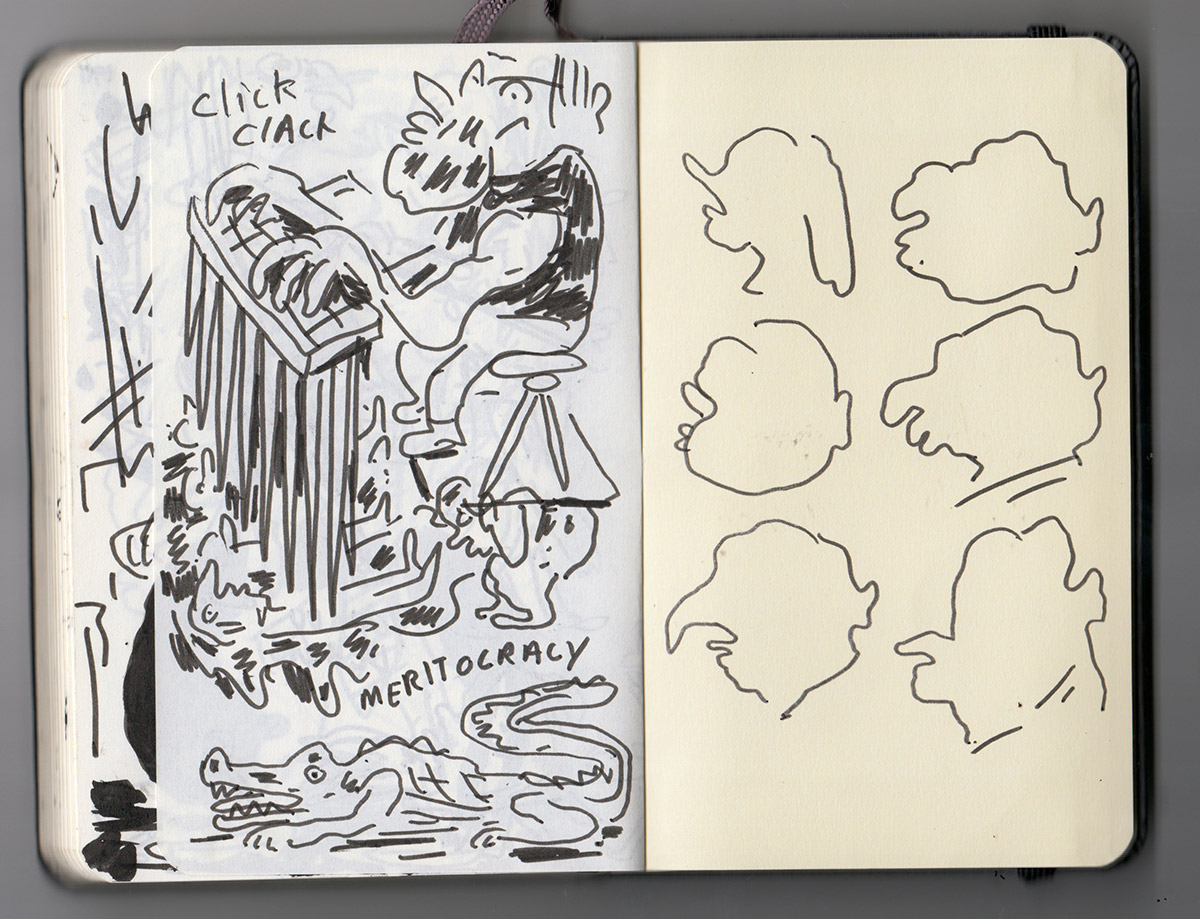 click
clack
MERITOCRACY